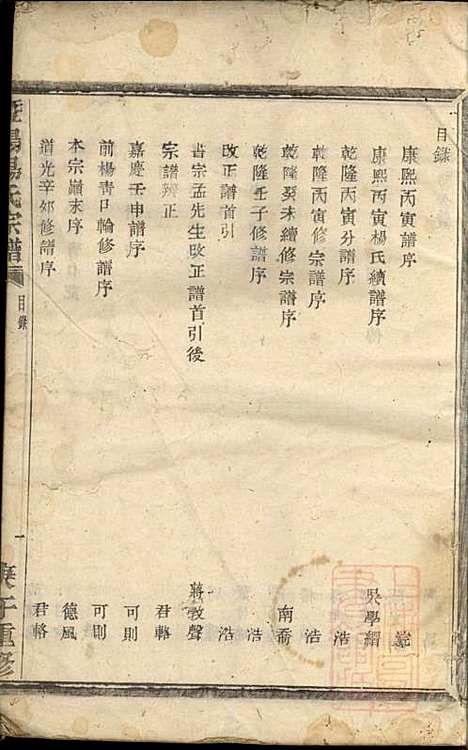 目錄
康熙丙寅譜序
康熙丙寅楊氏續譜序 吳學縉
乾隆丙寅分譜序 浩
乾隆丙寅修宗譜序 浩
乾隆癸未續修宗譜序 南喬
乾隆壬子修譜序 浩
改正譜首引 浩
書宗孟先生改正譜首引後 蔣敦聲
宗譜辨正 君輅
嘉慶壬申譜序 可則
前楊青口輪修譜序 可則
本宗巔末序 德風
道光辛卯修譜序 君輅
暨陽楊氏宗譜 目錄 一 庚子重修